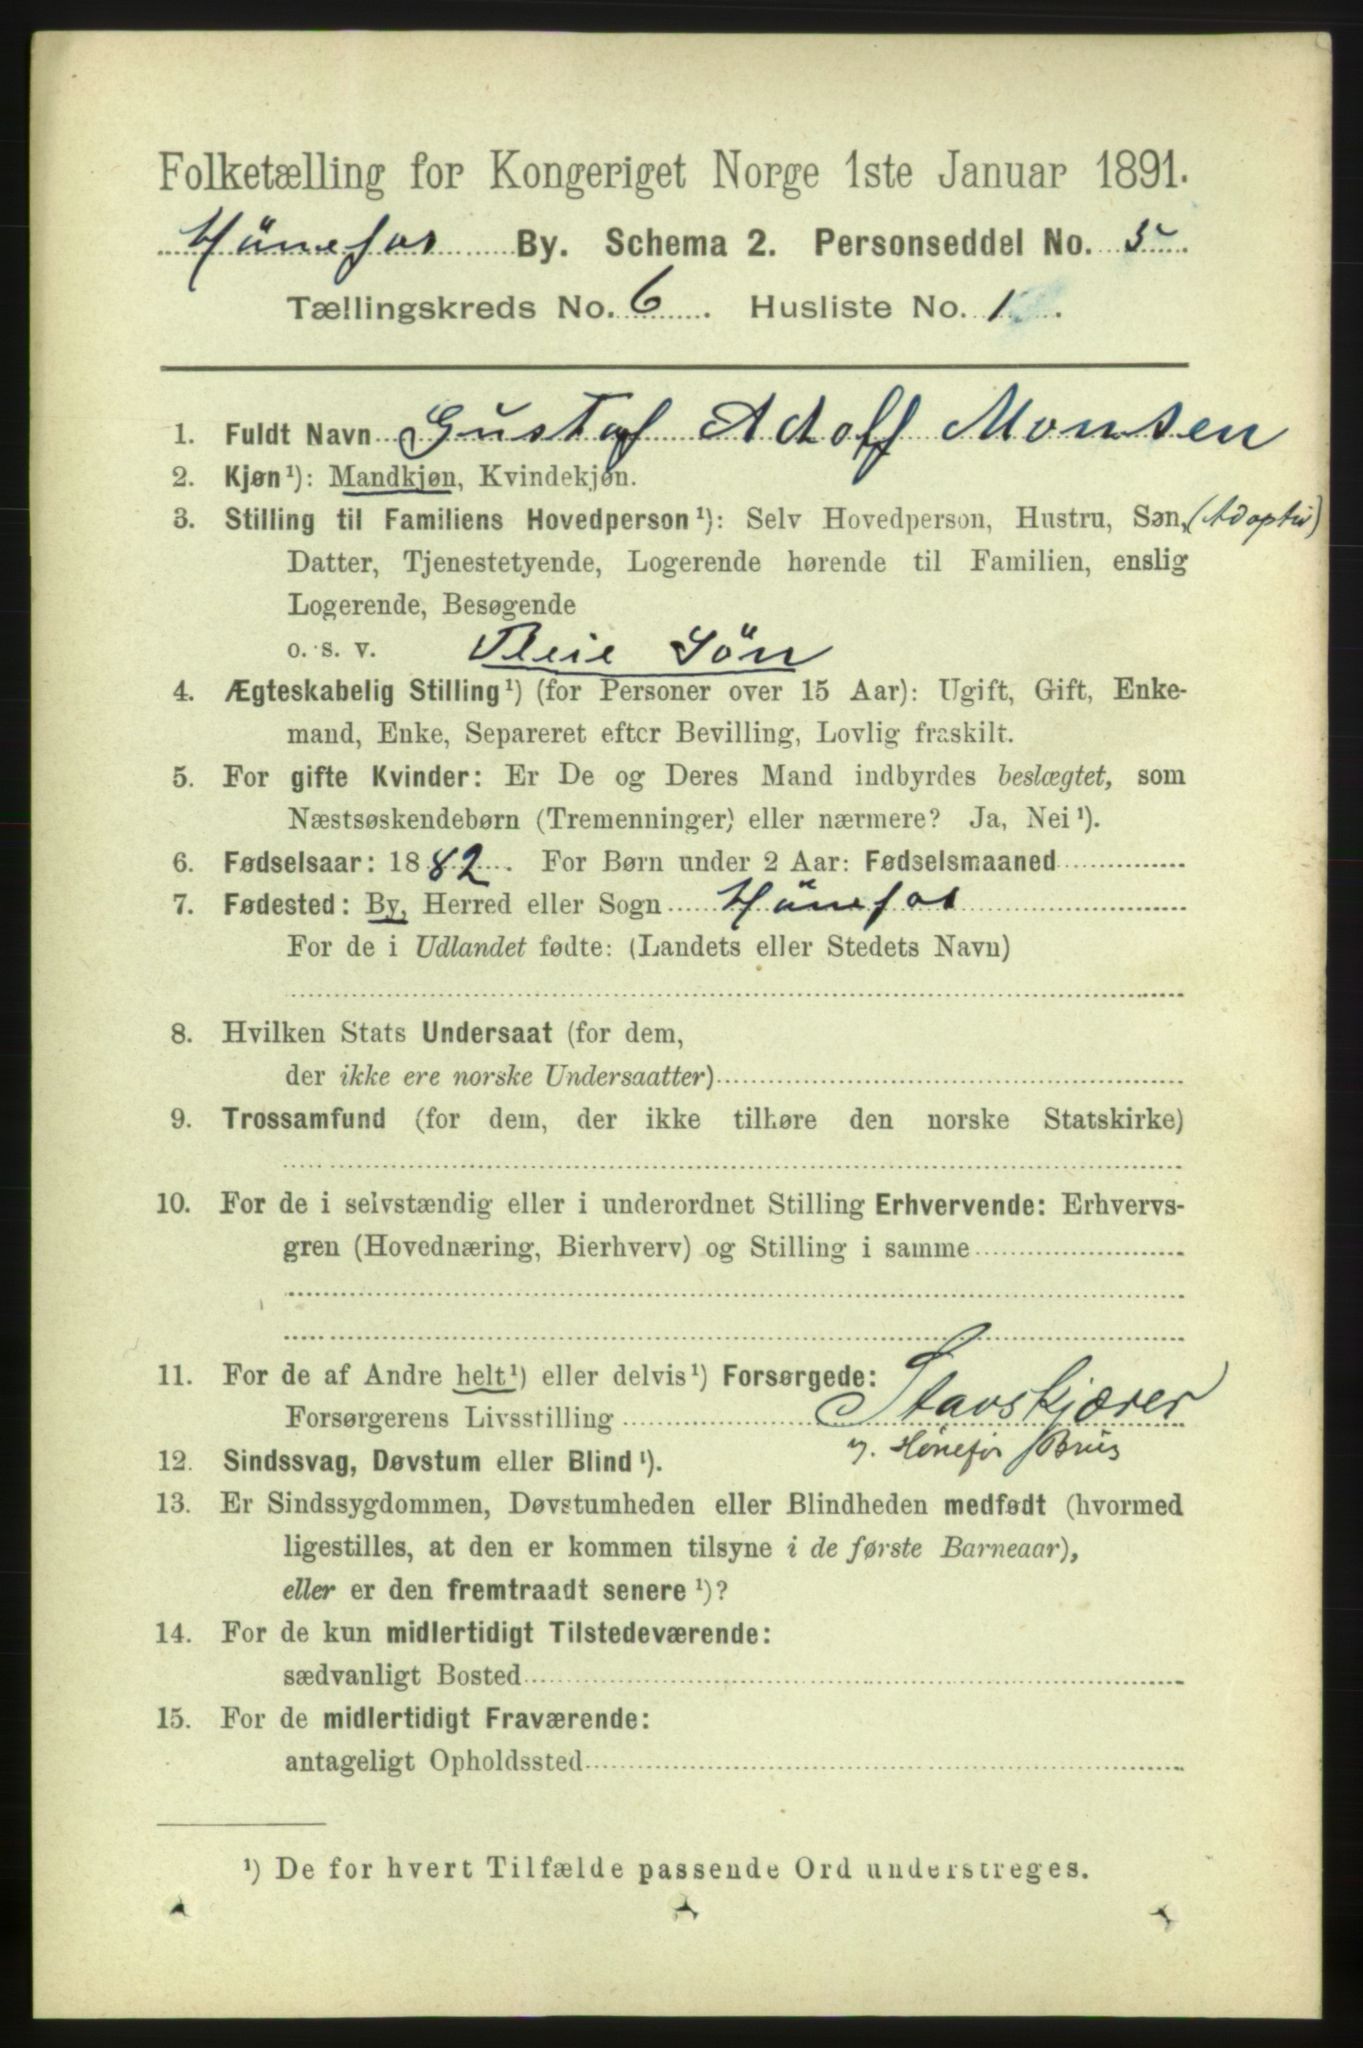 Folketælling for Kongeriget Norge 1ste Januar 1891.
Hönefos By. Schema 2. Personseddel No. 5
Tællingskreds No. 6. Husliste No. 1.
1. Fuldt Navn Gustaf Adolf Monsen
2. Kjøn¹): Mandkjøn, Kvindekjøn.
3. Stilling til Familiens Hovedperson¹): Selv Hovedperson, Hustru, Søn, (Adoptiv)
Datter, Tjenestetyende, Logerende hørende til Familien, enslig
Logerende, Besøgende
o. s. v. Pleie Sön
4. Ægteskabelig Stilling¹) (for Personer over 15 Aar): Ugift, Gift, Enke-
mand, Enke, Separeret efter Bevilling, Lovlig fraskilt.
5. For gifte Kvinder: Er De og Deres Mand indbyrdes beslægtet, som
Næstsøskendebørn (Tremenninger) eller nærmere? Ja, Nei¹).
6. Fødselsaar: 1882. For Børn under 2 Aar: Fødselsmaaned
7. Fødested: By, Herred eller Sogn Hönefos
For de i Udlandet fødte: (Landets eller Stedets Navn)
8. Hvilken Stats Undersaat (for dem,
der ikke ere norske Undersaatter)
9. Trossamfund (for dem, der ikke tilhøre den norske Statskirke)
10. For de i selvstændig eller i underordnet Stilling Erhvervende: Erhvervs-
gren (Hovednæring, Bierhverv) og Stilling i samme
11. For de af Andre helt¹) eller delvis¹) Forsørgede:
Forsørgerens Livsstilling Stavskjærer
v. Hönefos Brug
12. Sindssvag, Døvstum eller Blind¹).
13. Er Sindssygdommen, Døvstumheden eller Blindheden medfødt (hvormed
ligestilles, at den er kommen tilsyne i de første Barneaar),
eller er den fremtraadt senere¹)?
14. For de kun midlertidigt Tilstedeværende:
sædvanligt Bosted
15. For de midlertidigt Fraværende:
antageligt Opholdssted
¹) De for hvert Tilfælde passende Ord understreges.